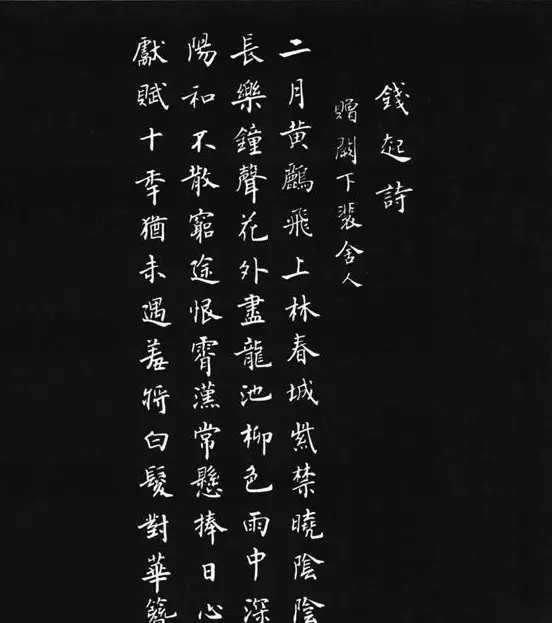 錢起詩
贈闕下裴舍人
二月黃鸝飛上林春城紫禁曉陰陰
長樂鐘聲花外盡龍池柳色雨中深
陽和不散窮途恨霄漢常懸捧日心
獻賦十年猶未遇羞將白髮對華簪